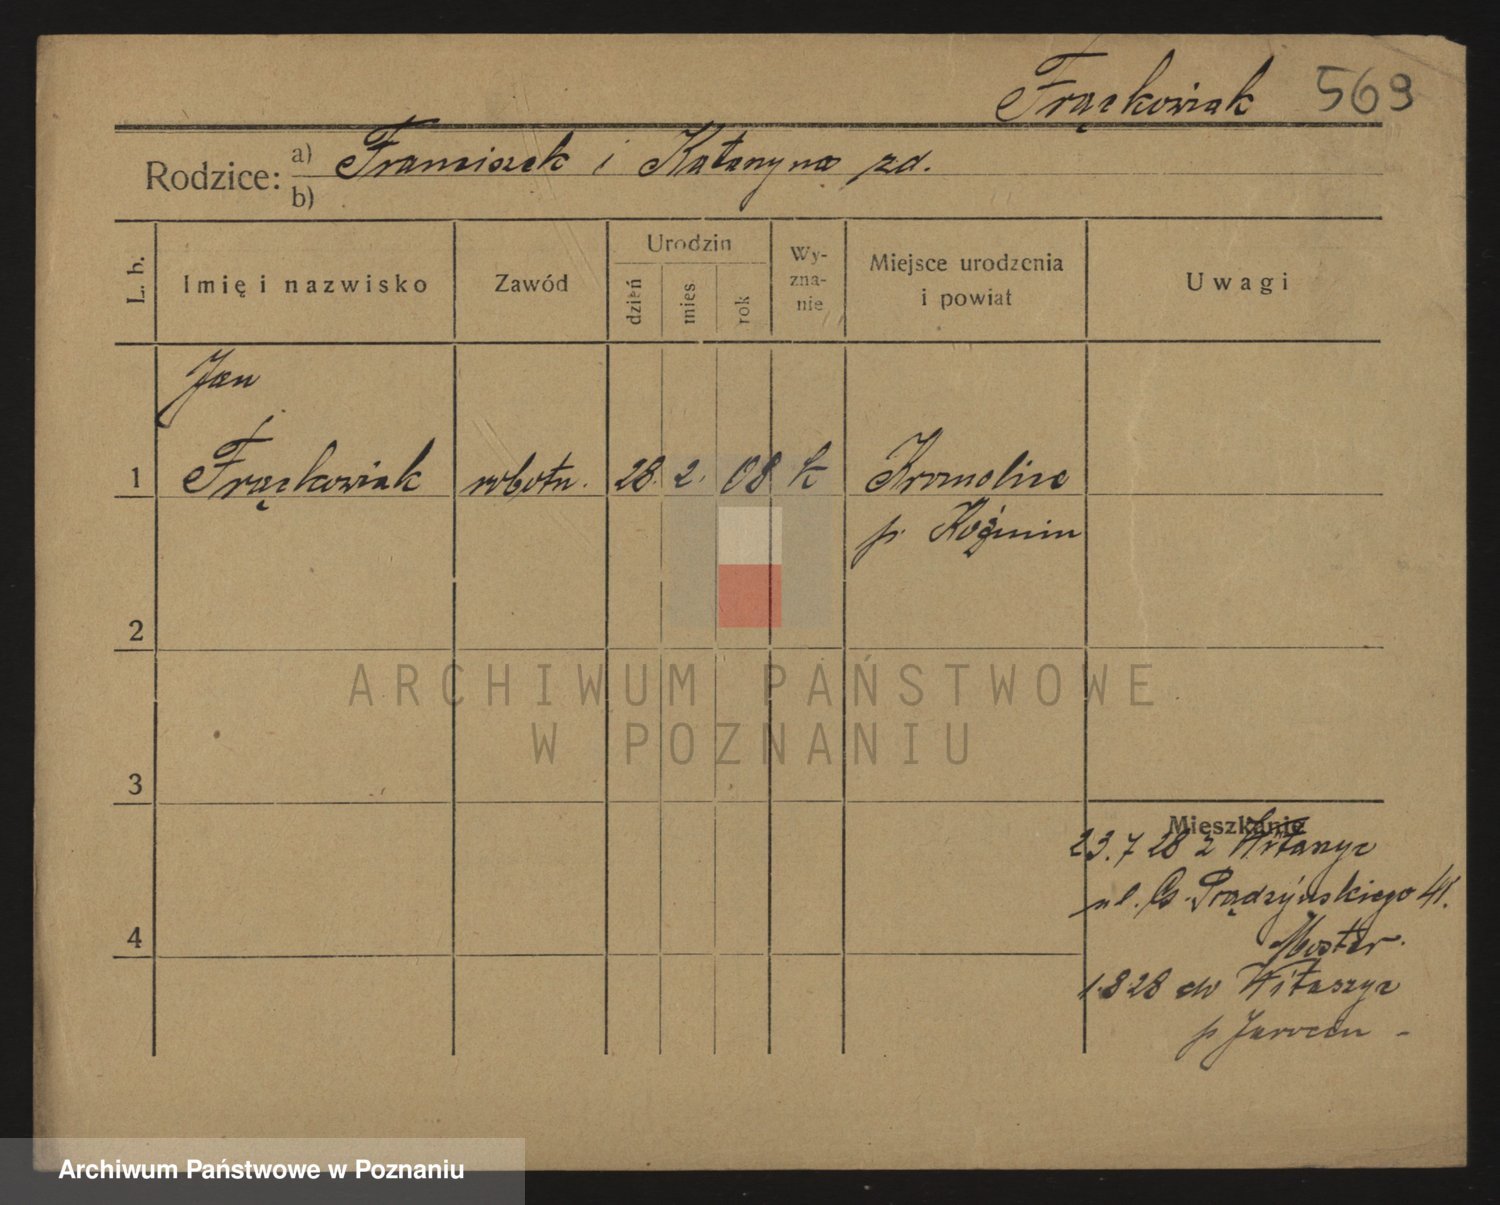 Frąckowiak 569
Rodzice: a) Franciszek i Katarzyna zd.
b)
L. b.
Imię i nazwisko
Zawód
Urodzin
dzień
mies
rok
Wy-
zna-
nie
Miejsce urodzenia
i powiat
Uwagi
Jan
1 Frąckowiak robotn. 28. 2. 08 k Kromolice
p. Koźmin
2
3
4
Mieszkanie
23.7 28 z Witaszyc
ul. Prądzyńskiego 41.
1.8 28 do Witaszyc
p Jarocin -
ARCHIWUM PAŃSTWOWE
W POZNANIU
Archiwum Państwowe w Poznaniu